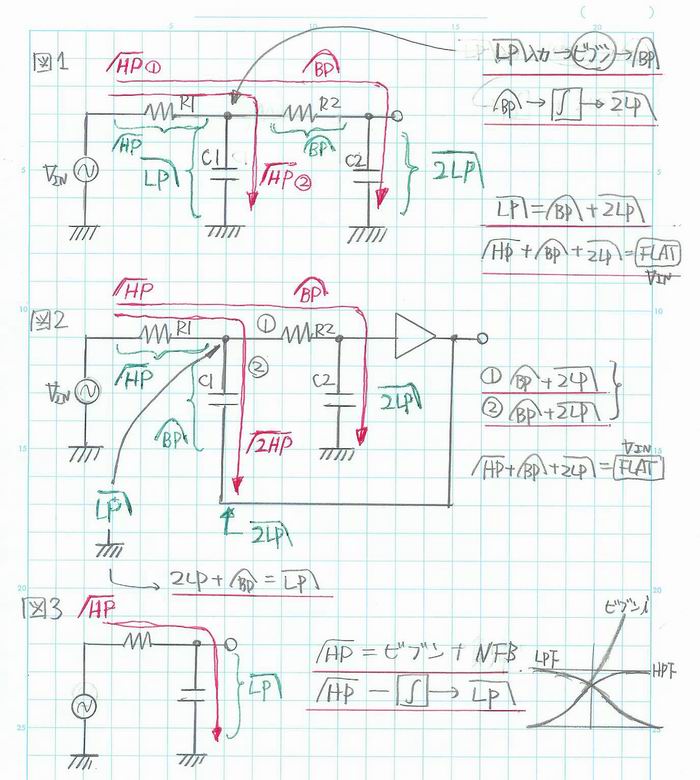 図1
HP①
BP
LP入力→ビブン→BP
BP→∫→2LP
R1
R2
HP
LP
C1
BP
C2
2LP
VIN
HP②
LP=BP+2LP
HP+BP+2LP=FLAT
VIN
図2
HP
BP
R1
①
R2
HP
②
VIN
C1
C2
BP
2LP
2HP
①BP+2LP
②BP+2LP
VIN
HP+BP+2LP=FLAT
LP
2LP
2LP+BP=LP
図3
HP
LP
HP=ビブン+NFB
HP-∫→LP
ビブン
LPF
HPF
5
10
15
20
5
10
15
20
25
5
10
15
20
25